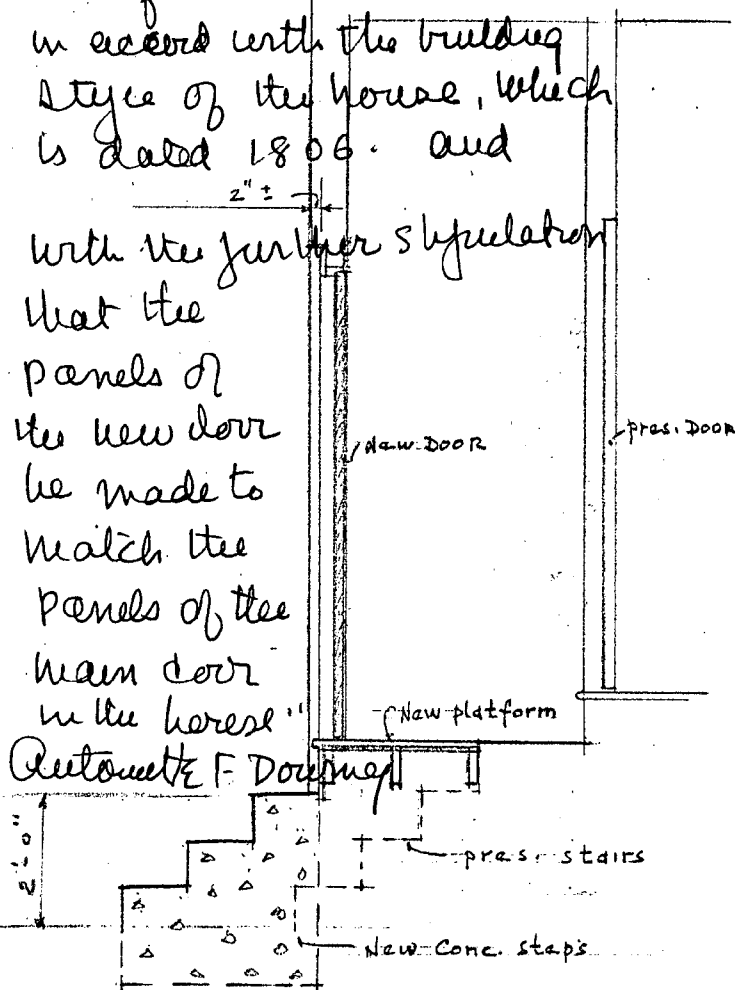 in accord with the building
style of the house, which
is dated 1806. and
2" ±
with the further stipulation
that the
panels of
the new door
be made to
match the
panels of the
main door
in the house"
Antoinette F. Downey
New DOOR
pres. DOOR
New platform
2'-0"
pres. stairs
New Conc. steps